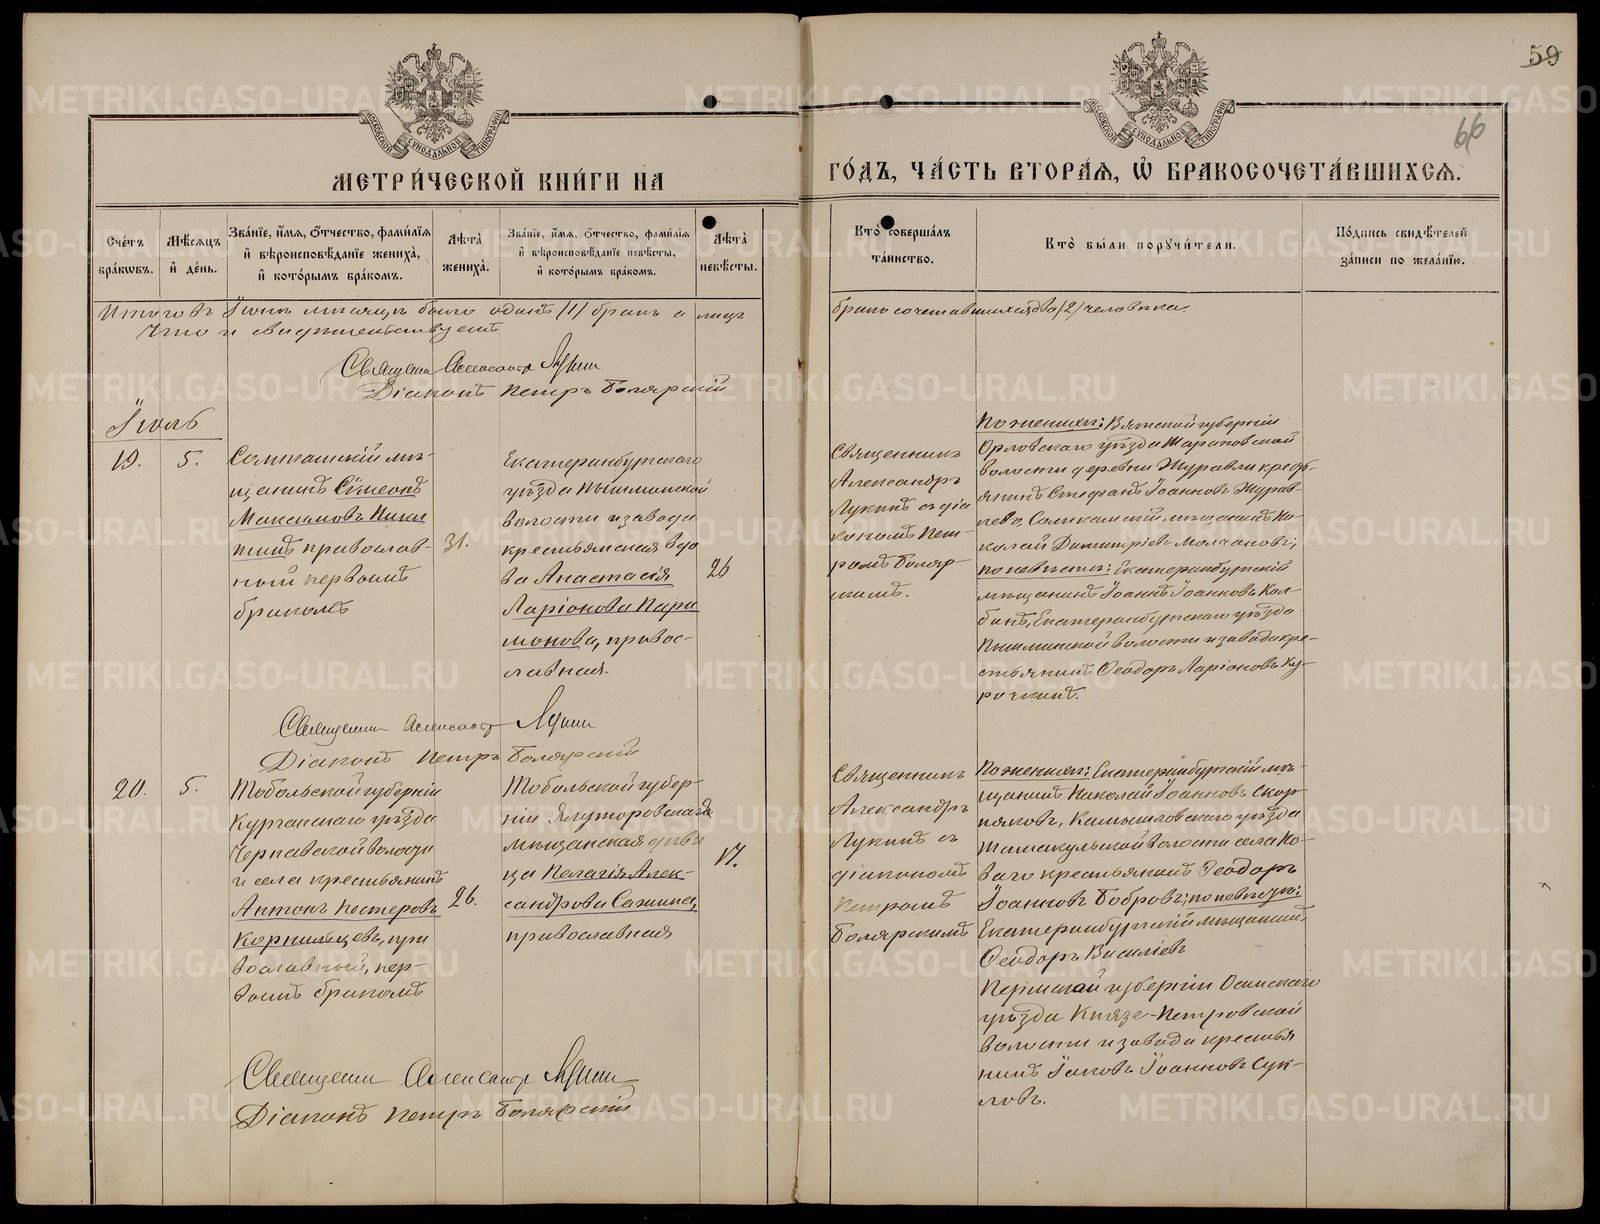 59
66
МОСКОВСКОЙ СѴНОДАЛЬНОЙ ТИПОГРАФІИ
МОСКОВСКОЙ СѴНОДАЛЬНОЙ ТИПОГРАФІИ
МЕТРИ́ЧЕСКОЙ КНИ́ГИ НА
ГО́ДЪ, ЧА́СТЬ ВТОРА́Я, Ѡ БРАКОСОЧЕТА́ВШИХСЯ.
Сче́тъ бра́ковъ.
Мѣ́сяцъ и҆ де́нь.
Зва́нїе, и҆́мя, ѻ҆́тчество, фами́лїя
и҆ вѣроисповѣ́данїе жениха̀,
и҆ кото́рымъ бра́комъ.
Лѣта̀ жениха̀.
Зва́нїе, и҆́мя, ѻ҆́тчество, фами́лїя
и҆ вѣроисповѣ́данїе невѣ́сты,
и҆ кото́рымъ бра́комъ.
Лѣта̀ невѣ́сты.
Кто̀ соверша́лъ та́инство.
Кто̀ бы́ли порꙋчи́тели.
По́дпись свидѣ́телей за́писи по жела́нїю.
Итого въ Іюнѣ мѣсяцѣ было одинъ /1/ бракъ а лицъ
бракосочетавшихся два /2/ человѣка.
Что и свидѣтельствуемъ
Священн. Александръ Лукинъ
Діаконъ Петръ Болярскій
Іюль
19.
5.
Соликамскій мѣ-
щанинъ Сѵмеонъ
Максимовъ Ники
тинъ православ-
ный первымъ
бракомъ
31.
Екатеринбургскаго
уѣзда Пышминской
волости и завода
крестьянская вдо
ва Анастасія
Ларіонова Пара
монова, правос-
лавная.
26
Священникъ
Александръ
Лукинъ съ діа
кономъ Пет-
ромъ Боляр-
скимъ.
По женихѣ: Вятской губерніи
Орловскаго уѣзда
волости деревни Журавли кресть-
янинъ Стефанъ Іоанновъ Журав-
левъ, Соликамскій мѣщанинъ Ни-
колай Димитріевъ Молчановъ;
по невѣстѣ: Екатеринбургскій
мѣщанинъ Іоаннъ Іоанновъ Кол-
бинъ, Екатеринбургскаго уѣзда
Пышминской волости и завода кре-
стьянинъ Ѳеодоръ Ларіоновъ Ку-
рочкинъ.
Священникъ Александръ Лукинъ
Діаконъ Петръ Болярскій
20.
5.
Тобольской губерніи
Курганскаго уѣзда
Чернавской волости
и села крестьянинъ
Антонъ Нестеровъ
Корнильцевъ, пра
вославный, пер-
вымъ бракомъ
26.
Тобольской губер-
ніи Ялуторовскаго
мѣщанская дѣви
ца Пелагія Алек-
сандрова Сажина,
православная
17.
Священникъ
Александръ
Лукинъ съ
діакономъ
Петромъ
Болярскимъ
По женихѣ: Екатеринбургскій мѣ-
щанинъ Николай Іоанновъ Скор-
няковъ, Камышловскаго уѣзда
Тамакульской волости села Но-
ваго крестьянинъ Ѳеодоръ
Іоанновъ Бобровъ; по невѣстѣ:
Екатеринбургскій мѣщанинъ
Ѳеодоръ Василіевъ
Пермской губерніи Осинскаго
уѣзда Князе-Петровской
волости и завода крестья
нинъ Іаковъ Іоанновъ Сук-
ловъ.
Священникъ Александръ Лукинъ
Діаконъ Петръ Болярскій
METRIKI.GASO-URAL.RU